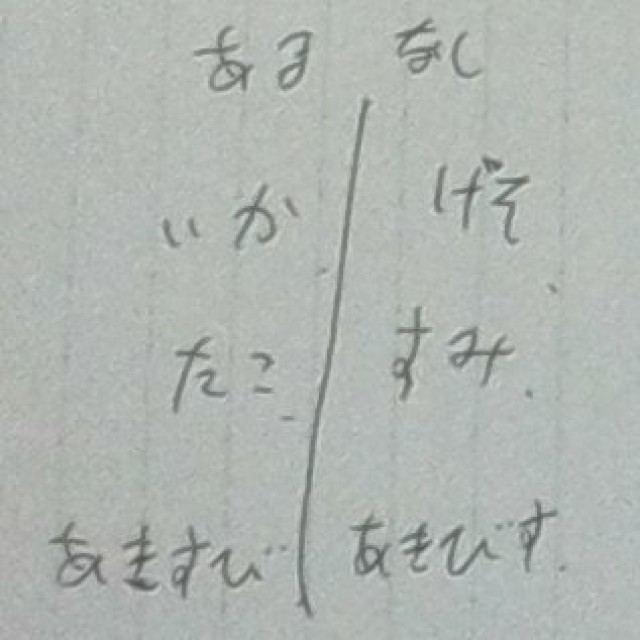 ある なし
いか げそ
たこ すみ
あきすび あきびす